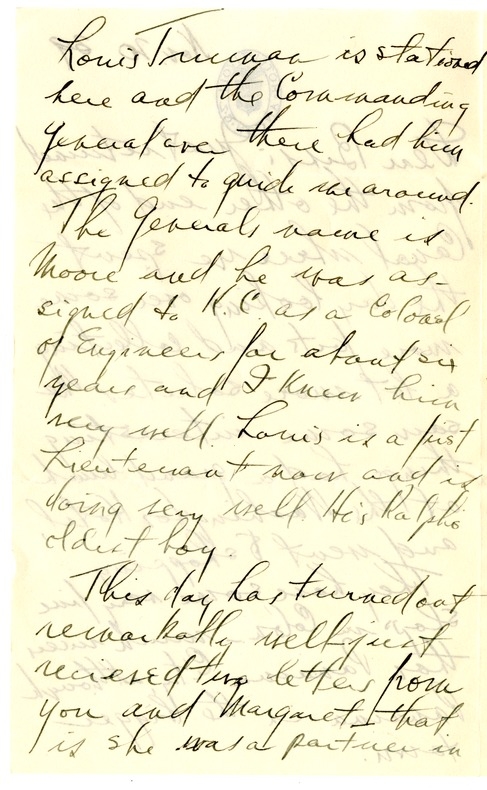 Louis Truman is stationed
here and the Commanding
general over there had him
assigned to guide me around.
The Generals name is
Moore and he was as-
signed to K.C. as a Colonel
of Engineers for about six
years and I knew him
very well. Louis is a first
Lieutenant now and is
doing very well His Ralphs
oldest boy.
This day has turned out
remarkably well-just
recieved two letters from
you and Margaret-that
is she was a partner in